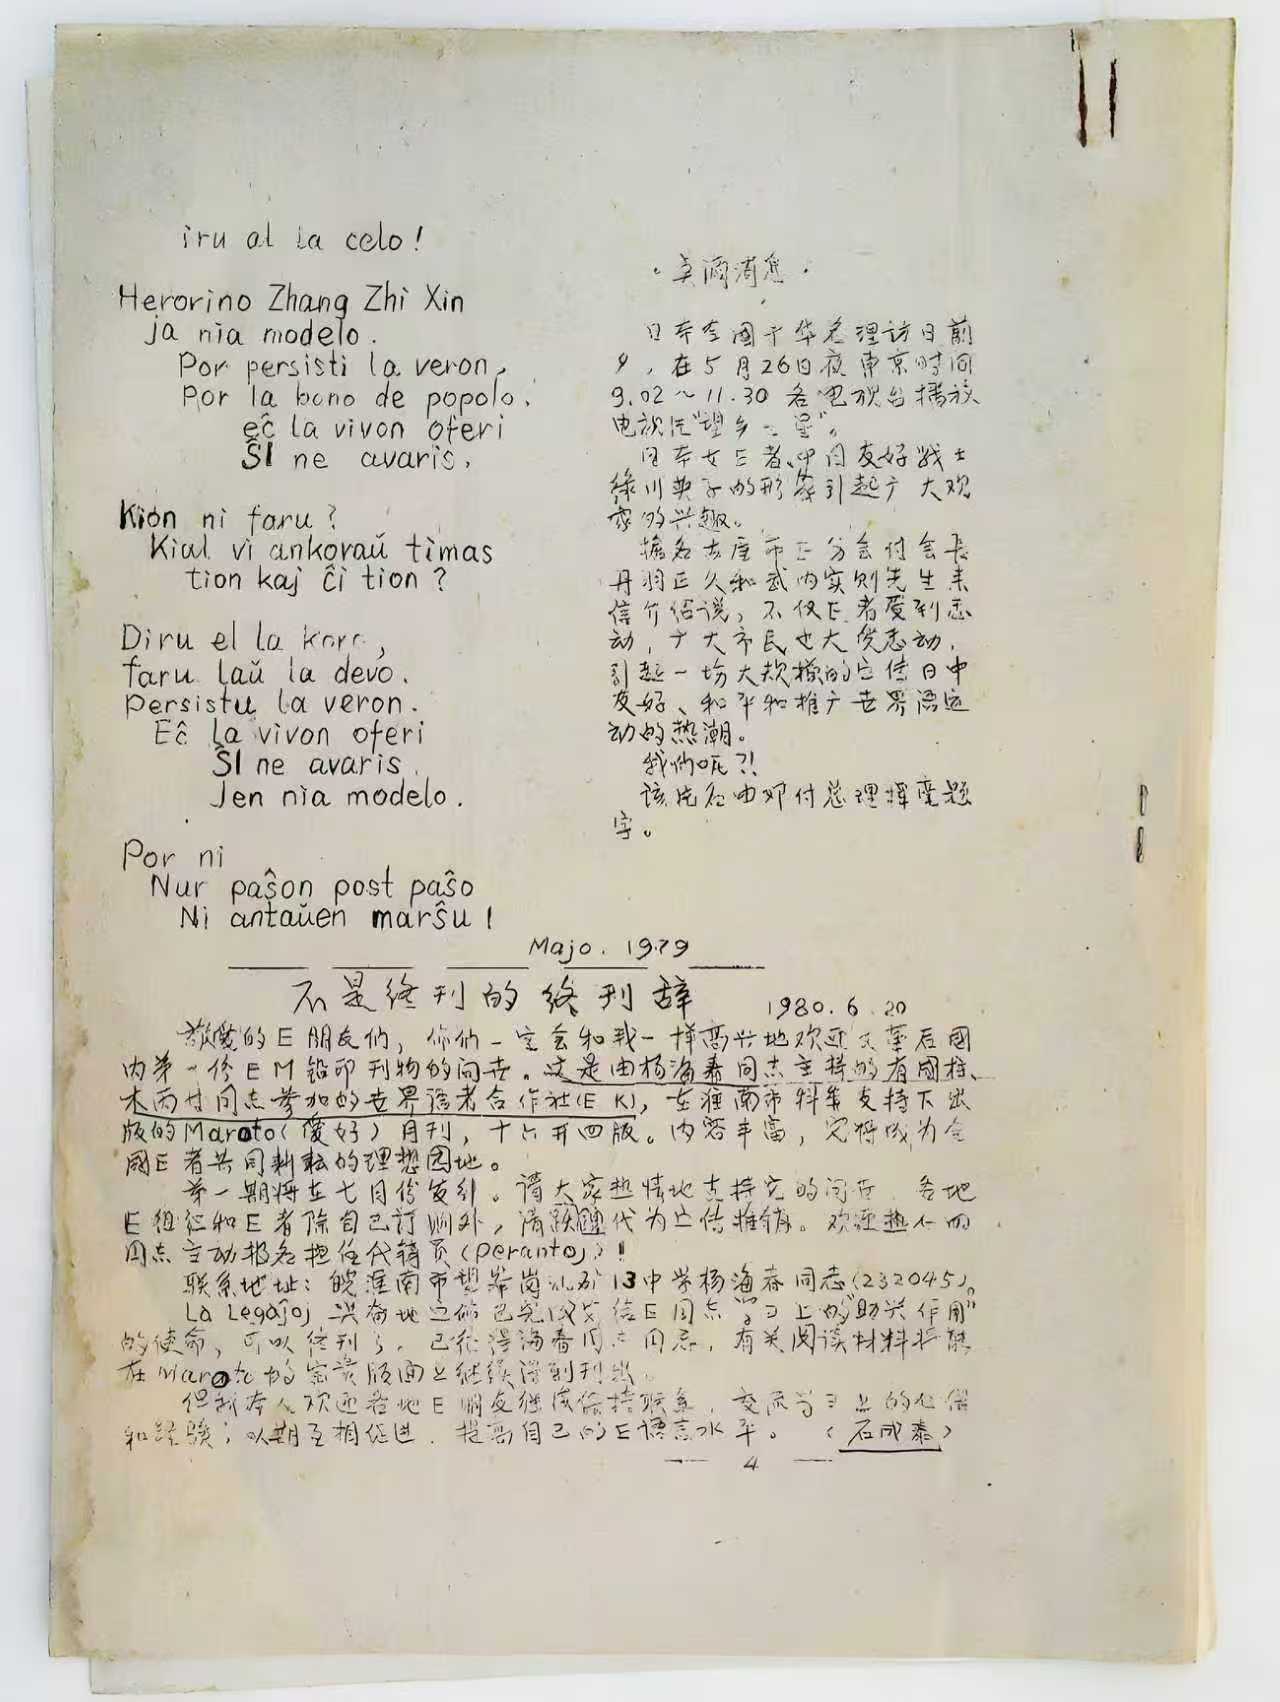 iru al la celo!
Herorino Zhang Zhi Xin
ja nia modelo.
Por persisti la veron,
Por la bono de popolo,
eĉ la vivon oferi
ŜI ne avaris.
Kion ni faru?
Kial vi ankoraŭ timas
tion kaj ĉi tion?
Diru el la koro,
faru laŭ la devo.
persistu la veron.
Eĉ la vivon oferi
ŜI ne avaris.
Jen nia modelo.
Por ni
Nur paŝon post paŝo
Ni antaŭen marŝu!
Majo. 1979
日本全国于华总理访日前
夕,在5月26日夜东京时间
9.02~11.30各电视台播放
电视片“望乡之星”。
日本女E者、中日友好战士
绿川英子的形象引起广大观
众的兴趣。
据名古屋市E分会付会长
丹羽正久和武内实则先生来
信介绍说,不仅E者受到感
动,广大市民也大受感动,
引起一场大规模的宣传日中
友好、和平和推广世界语运
动的热潮。
我们呢?!
该片名由邓付总理挥毫题
字。
不是终刊的终刊辞 1980.6.20
敬爱的E朋友们,你们一定会和我一样高兴地欢迎文革后國
内第一份EM铅印刊物的问世。这是由杨海春同志主持的有國柱、
木丙甘同志参加的世界语者合作社(EK),在淮南市科委支持下出
版的Maroto(爱好)月刊,十六开四版。内容丰富,它将成为全
國E者共同耕耘的理想园地。
第一期将在七月份发行。请大家热情地支持它的问世,各地
E组织和E者除自己订购外,请踊跃代为宣传推销。欢迎热心的
同志主动报名担任代销员(perantoj)!
联系地址:皖淮南市 岗 矿13中学杨海春同志(232045)。
La Legaĵoj 兴奋地宣佈已完成 给E同志学习上的“助兴作用”
的使命,可以终刊了。已征得海春同志同意,有关阅读材料将能
在Maroto的宝贵版面上继续得到刊出。
但我本人欢迎各地E朋友继续保持联系,交流学习上的心得
和经验,以期互相促进,提高自己的E语言水平。 (石成泰)
4